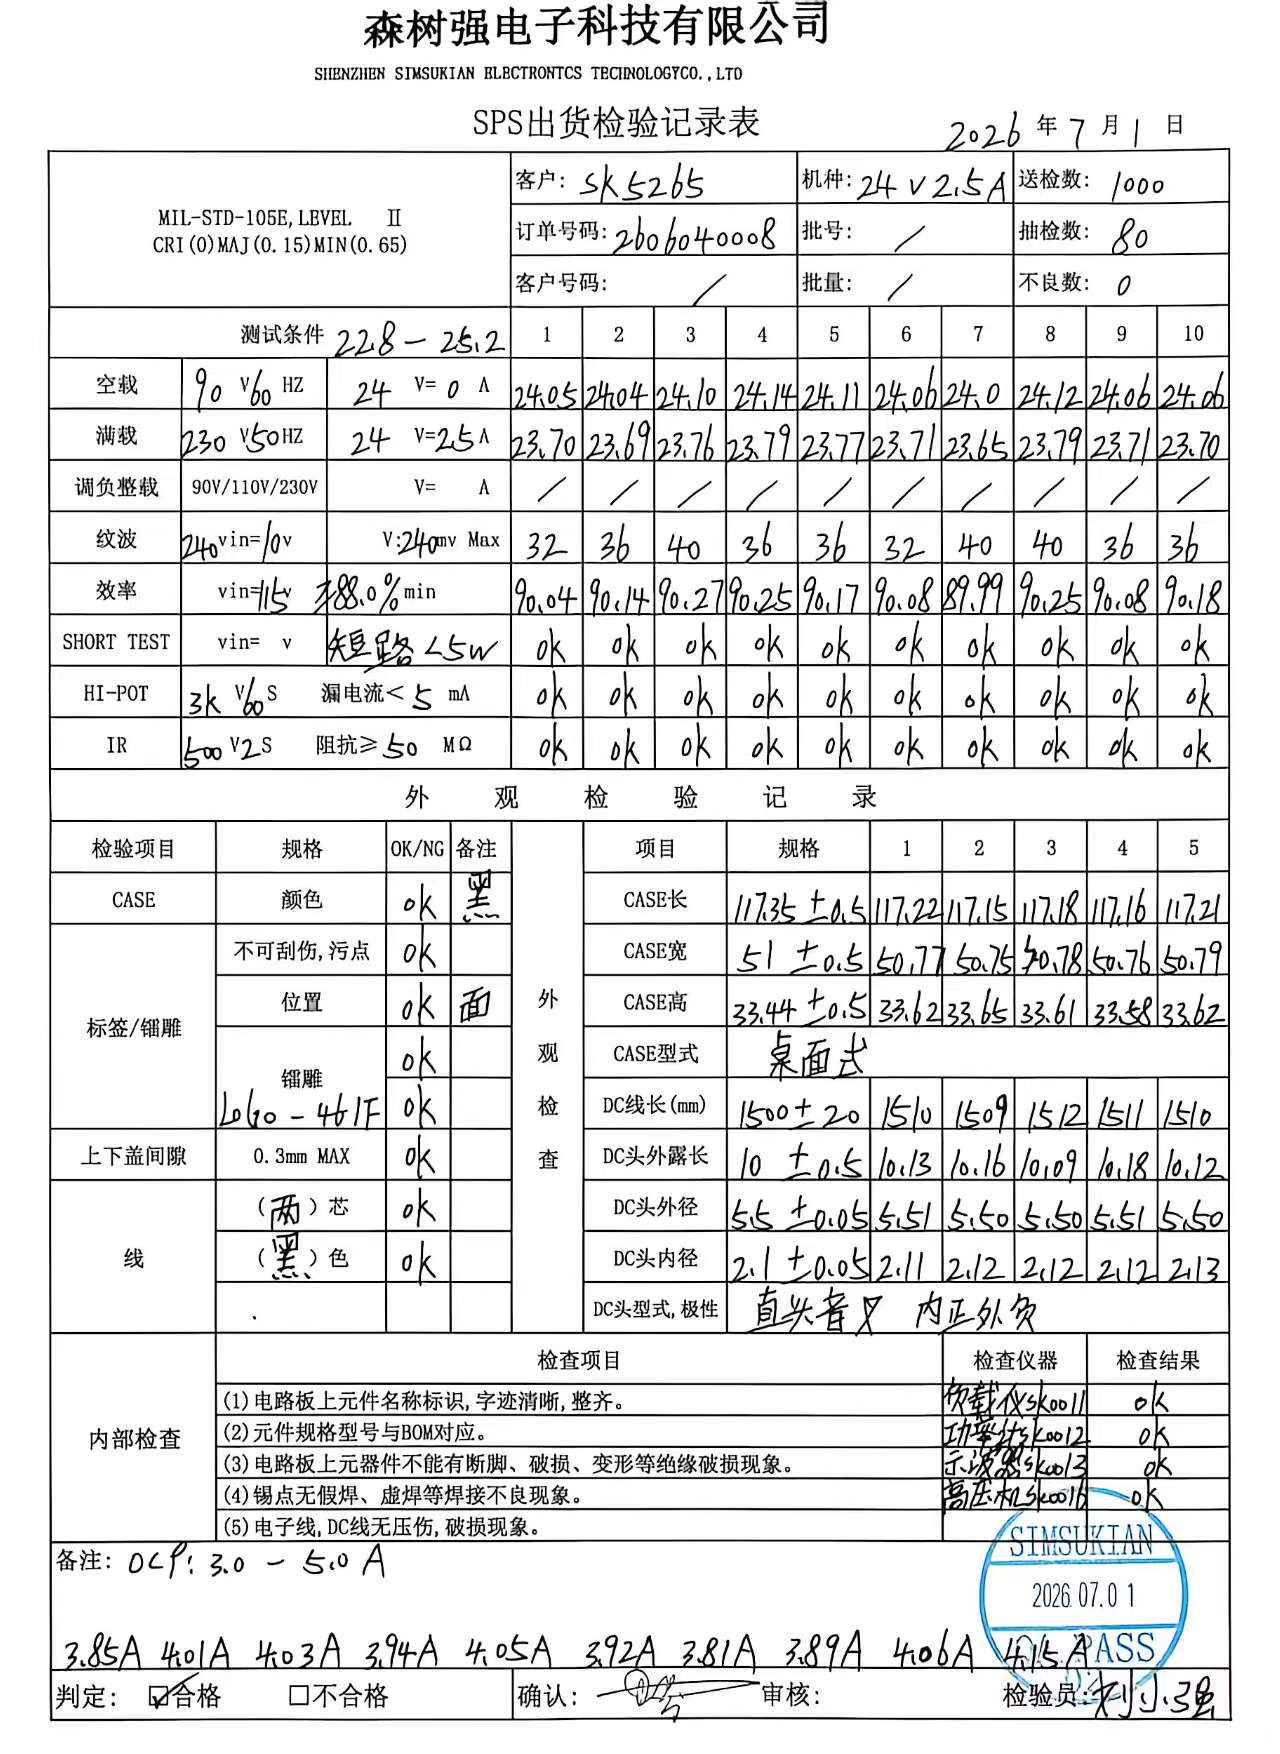 森树强电子科技有限公司
SHENZHEN SIMSUKIAN ELECTRONTCS TECHNOLOGYCO.,LTD
SPS出货检验记录表
2026 年 7 月 1 日
MIL-STD-105E,LEVEL Ⅱ
CRI(0)MAJ(0.15)MIN(0.65)
客户: SK5265 机种: 24V2.5A 送检数: 1000
订单号码: 2606040008 批号: / 抽检数: 80
客户号码: / 批量: / 不良数: 0
测试条件 22.8-25.2 1 2 3 4 5 6 7 8 9 10
空载 90 V 60 HZ 24 V= 0 A 24.05 24.04 24.10 24.14 24.11 24.06 24.0 24.12 24.06 24.06
满载 230 V 50 HZ 24 V= 2.5 A 23.70 23.69 23.76 23.79 23.77 23.71 23.65 23.79 23.71 23.70
调负整载 90V/110V/230V V= A / / / / / / / / / /
纹波 240vin=10v V:240mv Max 32 36 40 36 36 32 40 40 36 36
效率 vin=115v 88.0%min 90.04 90.14 90.27 90.25 90.17 90.08 89.99 90.25 90.08 90.18
SHORT TEST vin= v 短路<5W ok ok ok ok ok ok ok ok ok ok
HI-POT 3K V 60 S 漏电流< 5 mA ok ok ok ok ok ok ok ok ok ok
IR 500 V 2 S 阻抗≥ 50 MΩ ok ok ok ok ok ok ok ok ok ok
外观检验记录
检验项目 规格 OK/NG 备注 外观检查 项目 规格 1 2 3 4 5
CASE 颜色 ok 黑 CASE长 117.35±0.5 117.22 117.15 117.18 117.16 117.21
标签/镭雕 不可刮伤,污点 ok CASE宽 51±0.5 50.77 50.75 50.78 50.76 50.79
位置 ok 面 CASE高 33.44±0.5 33.62 33.65 33.61 33.58 33.62
镭雕 ok CASE型式 桌面式
LOGO-461F ok DC线长(mm) 1500±20 1510 1509 1512 1511 1510
上下盖间隙 0.3mm MAX ok DC头外露长 10±0.5 10.13 10.16 10.09 10.18 10.12
线 (两)芯 ok DC头外径 5.5±0.05 5.51 5.50 5.50 5.51 5.50
(黑)色 ok DC头内径 2.1±0.05 2.11 2.12 2.12 2.12 2.13
DC头型式,极性 直头音叉 内正外负
内部检查 检查项目 检查仪器 检查结果
(1)电路板上元件名称标识,字迹清晰,整齐。 负载仪SK0011 ok
(2)元件规格型号与BOM对应。 功率计SK0012 ok
(3)电路板上元器件不能有断脚、破损、变形等绝缘破损现象。 示波器SK0013 ok
(4)锡点无假焊、虚焊等焊接不良现象。 高压机SK0016 ok
(5)电子线,DC线无压伤,破损现象。
备注: OCP: 3.0-5.0A
SIMSUKIAN
2026.07.01
PASS
3.85A 4.01A 4.03A 3.94A 4.05A 3.92A 3.81A 3.89A 4.06A 4.15A
判定: ☑合格 □不合格 确认: 审核: 检验员: 刘小强